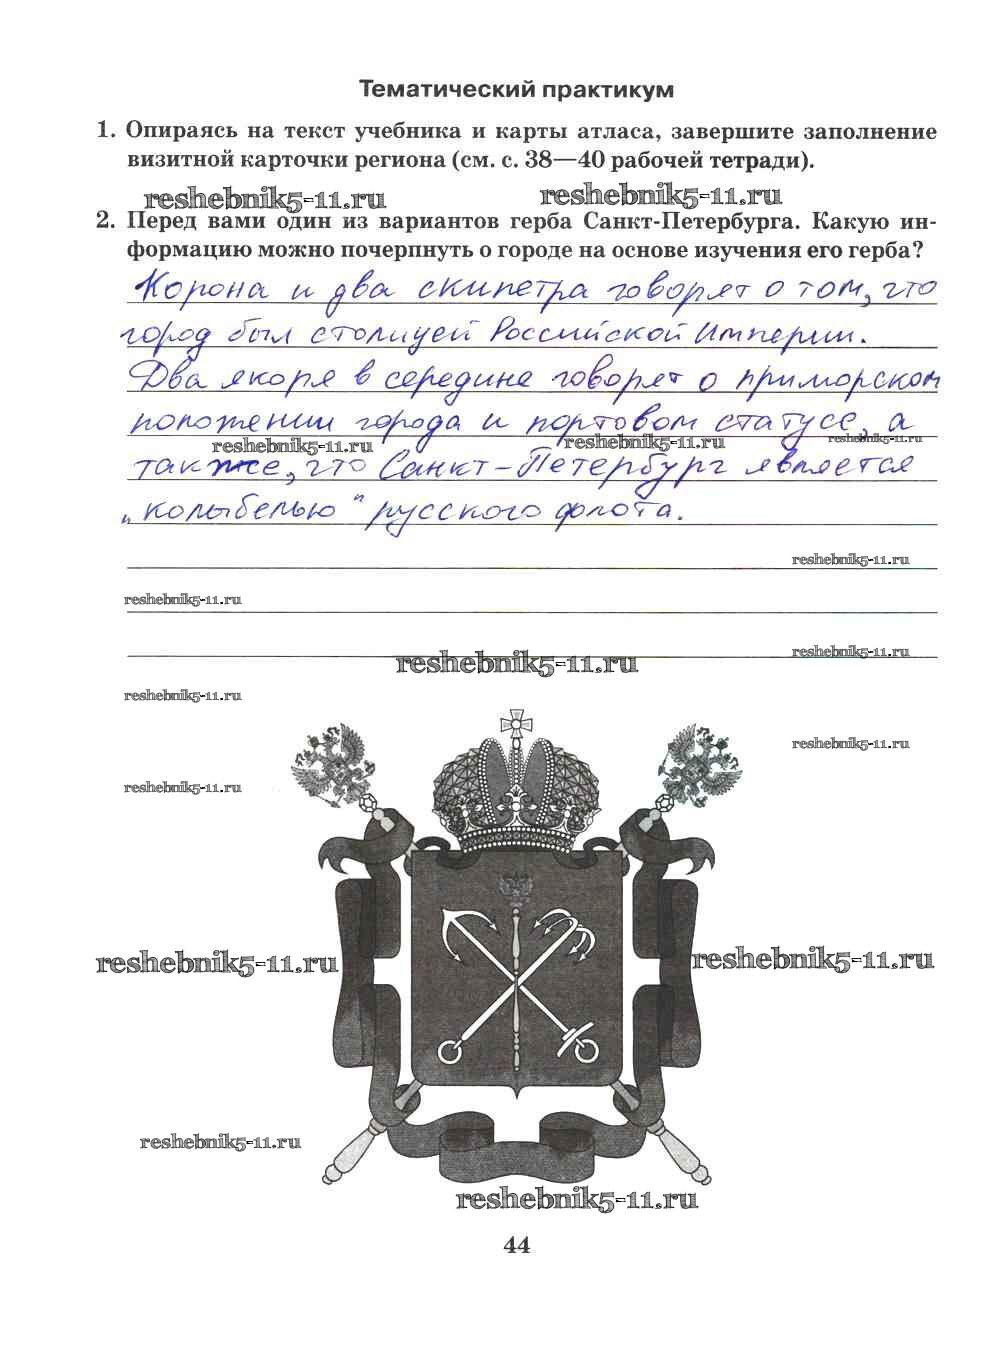 Тематический практикум
1. Опираясь на текст учебника и карты атласа, завершите заполнение
визитной карточки региона (см. с. 38—40 рабочей тетради).
reshebnik5-11.ru reshebnik5-11.ru
2. Перед вами один из вариантов герба Санкт-Петербурга. Какую ин-
формацию можно почерпнуть о городе на основе изучения его герба?
Корона и два скипетра говорят о том, что
город был столицей Российской Империи.
Два якоря в середине говорят о приморском
положении города и портовом статусе, а
reshebnik5-11.ru reshebnik5-11.ru reshebnik5-11.ru
также, что Санкт-Петербург является
„колыбелью" русского флота.
reshebnik5-11.ru
reshebnik5-11.ru
reshebnik5-11.ru
reshebnik5-11.ru
reshebnik5-11.ru
reshebnik5-11.ru
reshebnik5-11.ru
reshebnik5-11.ru reshebnik5-11.ru
reshebnik5-11.ru
reshebnik5-11.ru
44